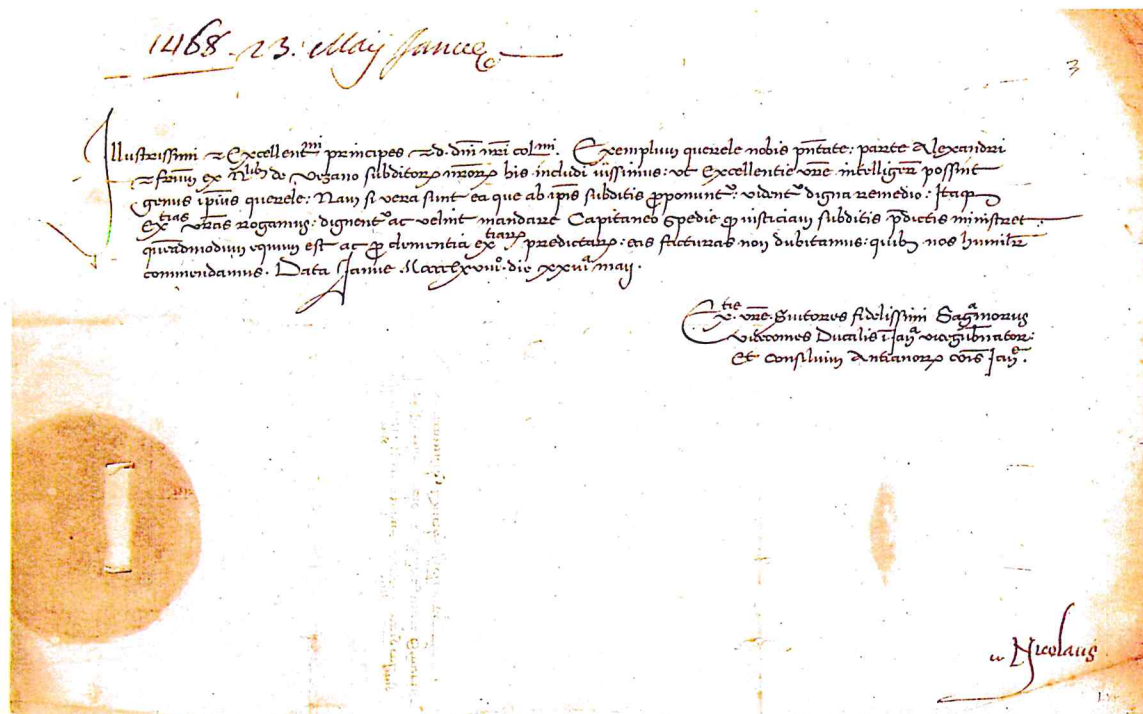 1468. 23. Maij Janue
3
Illustrissimi et Excellent^mi principes et d. dni nri col^mi. Exemplum querele nobis pntate: parte Alexandri
et frum ex N^libus de Vezano subditorum nrorum his includi iussimus: ut Excellentie vre intelligere possint
genus ipius querele: Nam si vera sunt ea que ab ipis subditis proponuntur: videntur digna remedio: Itaque
Ex^tias vras rogamus: dignentur ac velint mandare Capitaneo Spedie qui iusticiam subditis pdictis ministret:
quemadmodum equum est ac pro clementia ex^tiarum predictarum: eas facturas non dubitamus: quibus nos humiliter
commendamus. Data Janue Mcccclxviii. die xxiii maij.
Ex^tie vre. Sagramorus
Vicecomes Ducalis in Jan^a vicegubernator:
Et Consilium Antianorum cois Jan^e.
Nicolaus